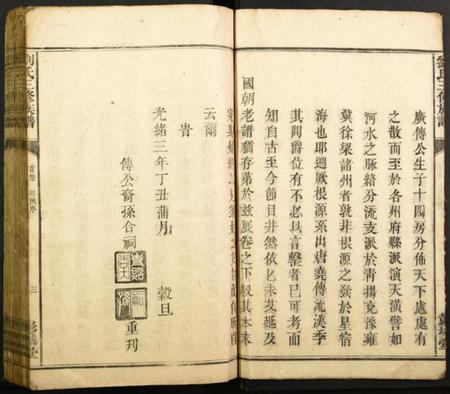 廣傳公生子十四房分佈天下處處有
之散而至於各州府縣派演天潢譬如
河水之脈絡分流支派於青揚兗豫雍
冀徐梁諸州者孰非根源之發於星宿
海也耶遡厥根源系出唐堯傳流漢季
其間爵位有不必以言罄者已可考而
知自古至今節目井然依匕未艾延及
國朝老譜猶存弟於茲展卷之下叙其本末
云爾
旹
光緒三年丁丑蒲月 穀旦
傳公裔孫合祠 重刊
劉氏三修族譜
首卷
三